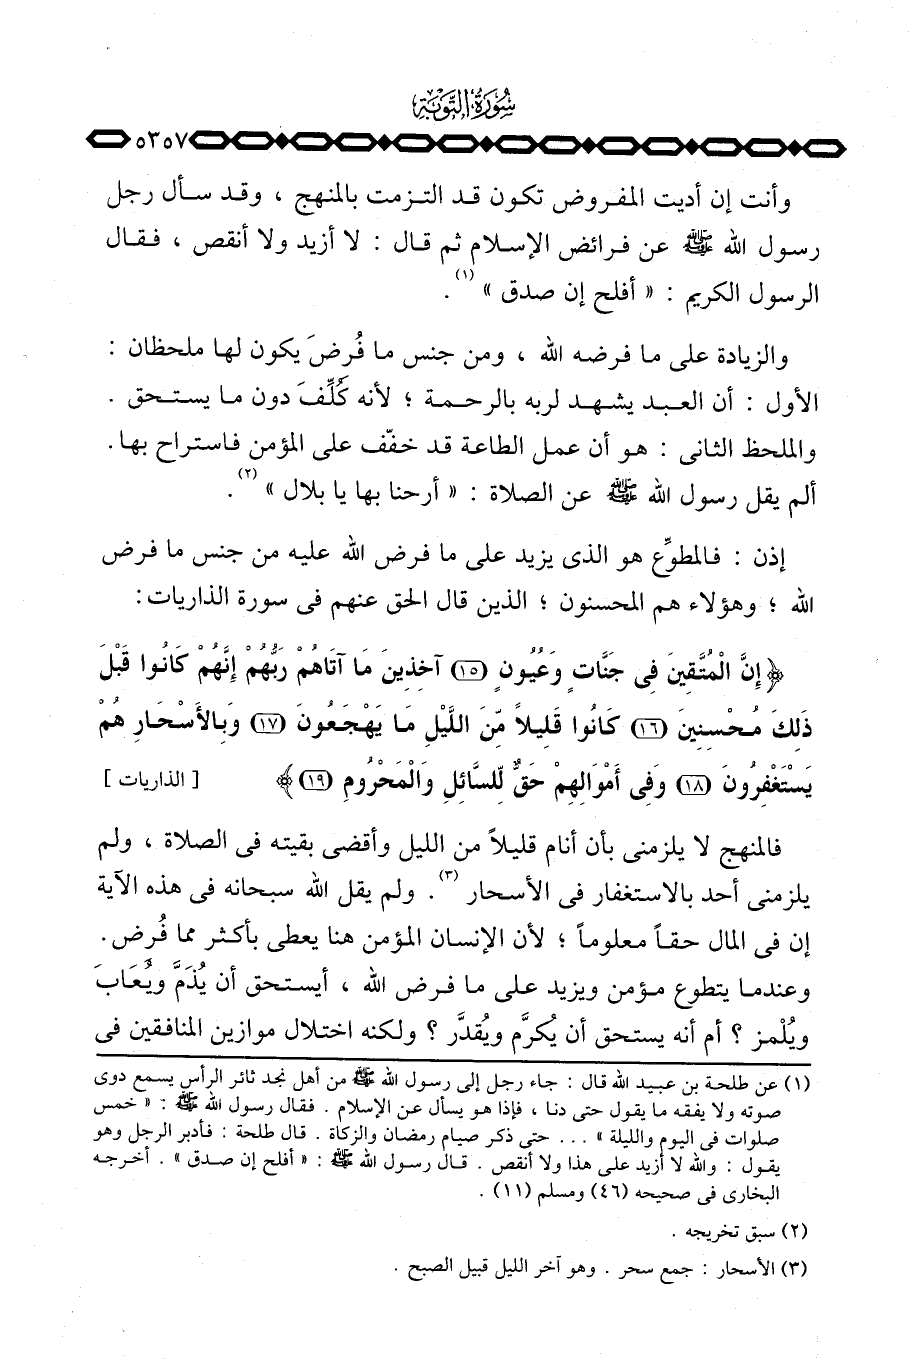 سُورَةُ التَّوْبَة
٥٣٥٧
وأنت إن أديت المفروض تكون قد التزمت بالمنهج ، وقد سأل رجل
رسول الله ﷺ عن فرائض الإسلام ثم قال : لا أزيد ولا أنقص ، فقال
الرسول الكريم : « أفلح إن صدق » (١) .
والزيادة على ما فرضه الله ، ومن جنس ما فُرضَ يكون لها ملحظان :
الأول : أن العبد يشهد لربه بالرحمة ؛ لأنه كُلِّفَ دون ما يستحق .
والملحظ الثانى : هو أن عمل الطاعة قد خفّف على المؤمن فاستراح بها.
ألم يقل رسول الله ﷺ عن الصلاة : « أرحنا بها يا بلال » (٢) .
إذن : فالمطوِّع هو الذى يزيد على ما فرض الله عليه من جنس ما فرض
الله ؛ وهؤلاء هم المحسنون ؛ الذين قال الحق عنهم فى سورة الذاريات:
﴿ إِنَّ الْمُتَّقِينَ فِى جَنَّاتٍ وَعُيُونٍ (١٥) آخِذِينَ مَا آتَاهُمْ رَبُّهُمْ إِنَّهُمْ كَانُوا قَبْلَ
ذَلِكَ مُحْسِنِينَ (١٦) كَانُوا قَلِيلاً مِّنَ اللَّيْلِ مَا يَهْجَعُونَ (١٧) وَبِالأَسْحَارِ هُمْ
يَسْتَغْفِرُونَ (١٨) وَفِى أَمْوَالِهِمْ حَقٌّ لِّلسَّائِلِ وَالْمَحْرُومِ (١٩) ﴾ [ الذاريات ]
فالمنهج لا يلزمنى بأن أنام قليلاً من الليل وأقضى بقيته فى الصلاة ، ولم
يلزمنى أحد بالاستغفار فى الأسحار (٣) . ولم يقل الله سبحانه فى هذه الآية
إن فى المال حقاً معلوماً ؛ لأن الإنسان المؤمن هنا يعطى بأكثر مما فُرض.
وعندما يتطوع مؤمن ويزيد على ما فرض الله ، أيستحق أن يُذَمَّ ويُعَابَ
ويُلْمز ؟ أم أنه يستحق أن يُكرَّم ويُقدَّر ؟ ولكنه اختلال موازين المنافقين فى
(١) عن طلحة بن عبيد الله قال : جاء رجل إلى رسول الله ﷺ من أهل نجد ثائر الرأس يسمع دوى
صوته ولا يفقه ما يقول حتى دنا ، فإذا هو يسأل عن الإسلام . فقال رسول الله ﷺ : « خمس
صلوات فى اليوم والليلة » ... حتى ذكر صيام رمضان والزكاة . قال طلحة : فأدبر الرجل وهو
يقول : والله لا أزيد على هذا ولا أنقص . قال رسول الله ﷺ : « أفلح إن صدق » . أخرجه
البخارى فى صحيحه (٤٦) ومسلم (١١) .
(٢) سبق تخريجه .
(٣) الأسحار : جمع سحر . وهو آخر الليل قبيل الصبح .